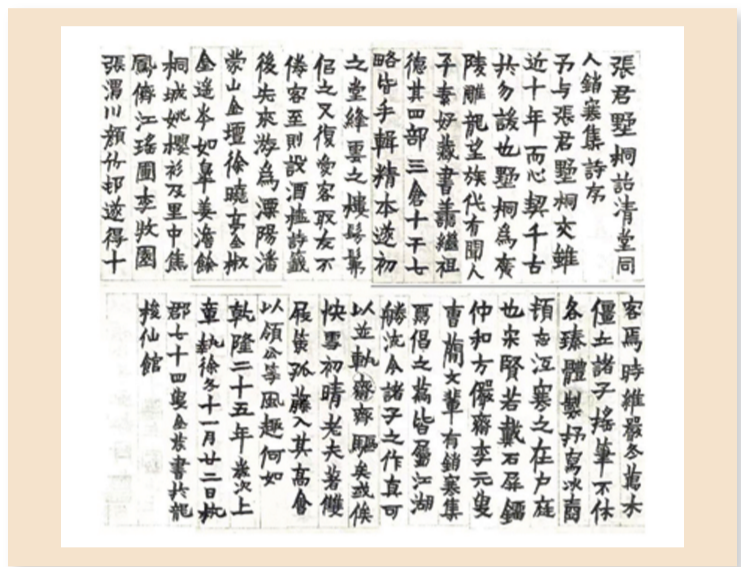 張君墅桐詒清堂同
人銷寒集詩序
予与張君墅桐交雖
近十年而心契千古
共勿諼也墅桐為廣
陵雕龍望族代有聞人
子素好藏書蕭繼祖
德其四部三倉十干七
略皆手輯精本遂初
之堂絳雲之樓髣髴
侣之又復愛客取友不
倦客至則設酒榼詩籤
後先來游為溧陽潘
蒙山金壇徐曉亭金椒
金遙岑如皋姜潘餘
桐城姚櫻衫及里中焦
鳳儕江瑤圃李牧園
張渭川顏竹邨遂得十
客焉時維嚴冬萬木
僵立諸子搖筆不休
各臻體製抒寫冰窗
頓忘沍寒之在戶庭
也宋賢若戴石屏鎦
仲和方儼齋李元叟
曹蘭文輩有銷寒集
倡之為皆屬江湖
勝流今諸子之作真可
以並軌齋齊驅矣或俟
快雪初晴老夫著雙
屐策孤藤入其高會
以領公等風趣何如
乾隆二十五年歲次上
章執徐冬十一月廿二日杭
郡七十四叟金農書於龍
梭仙館